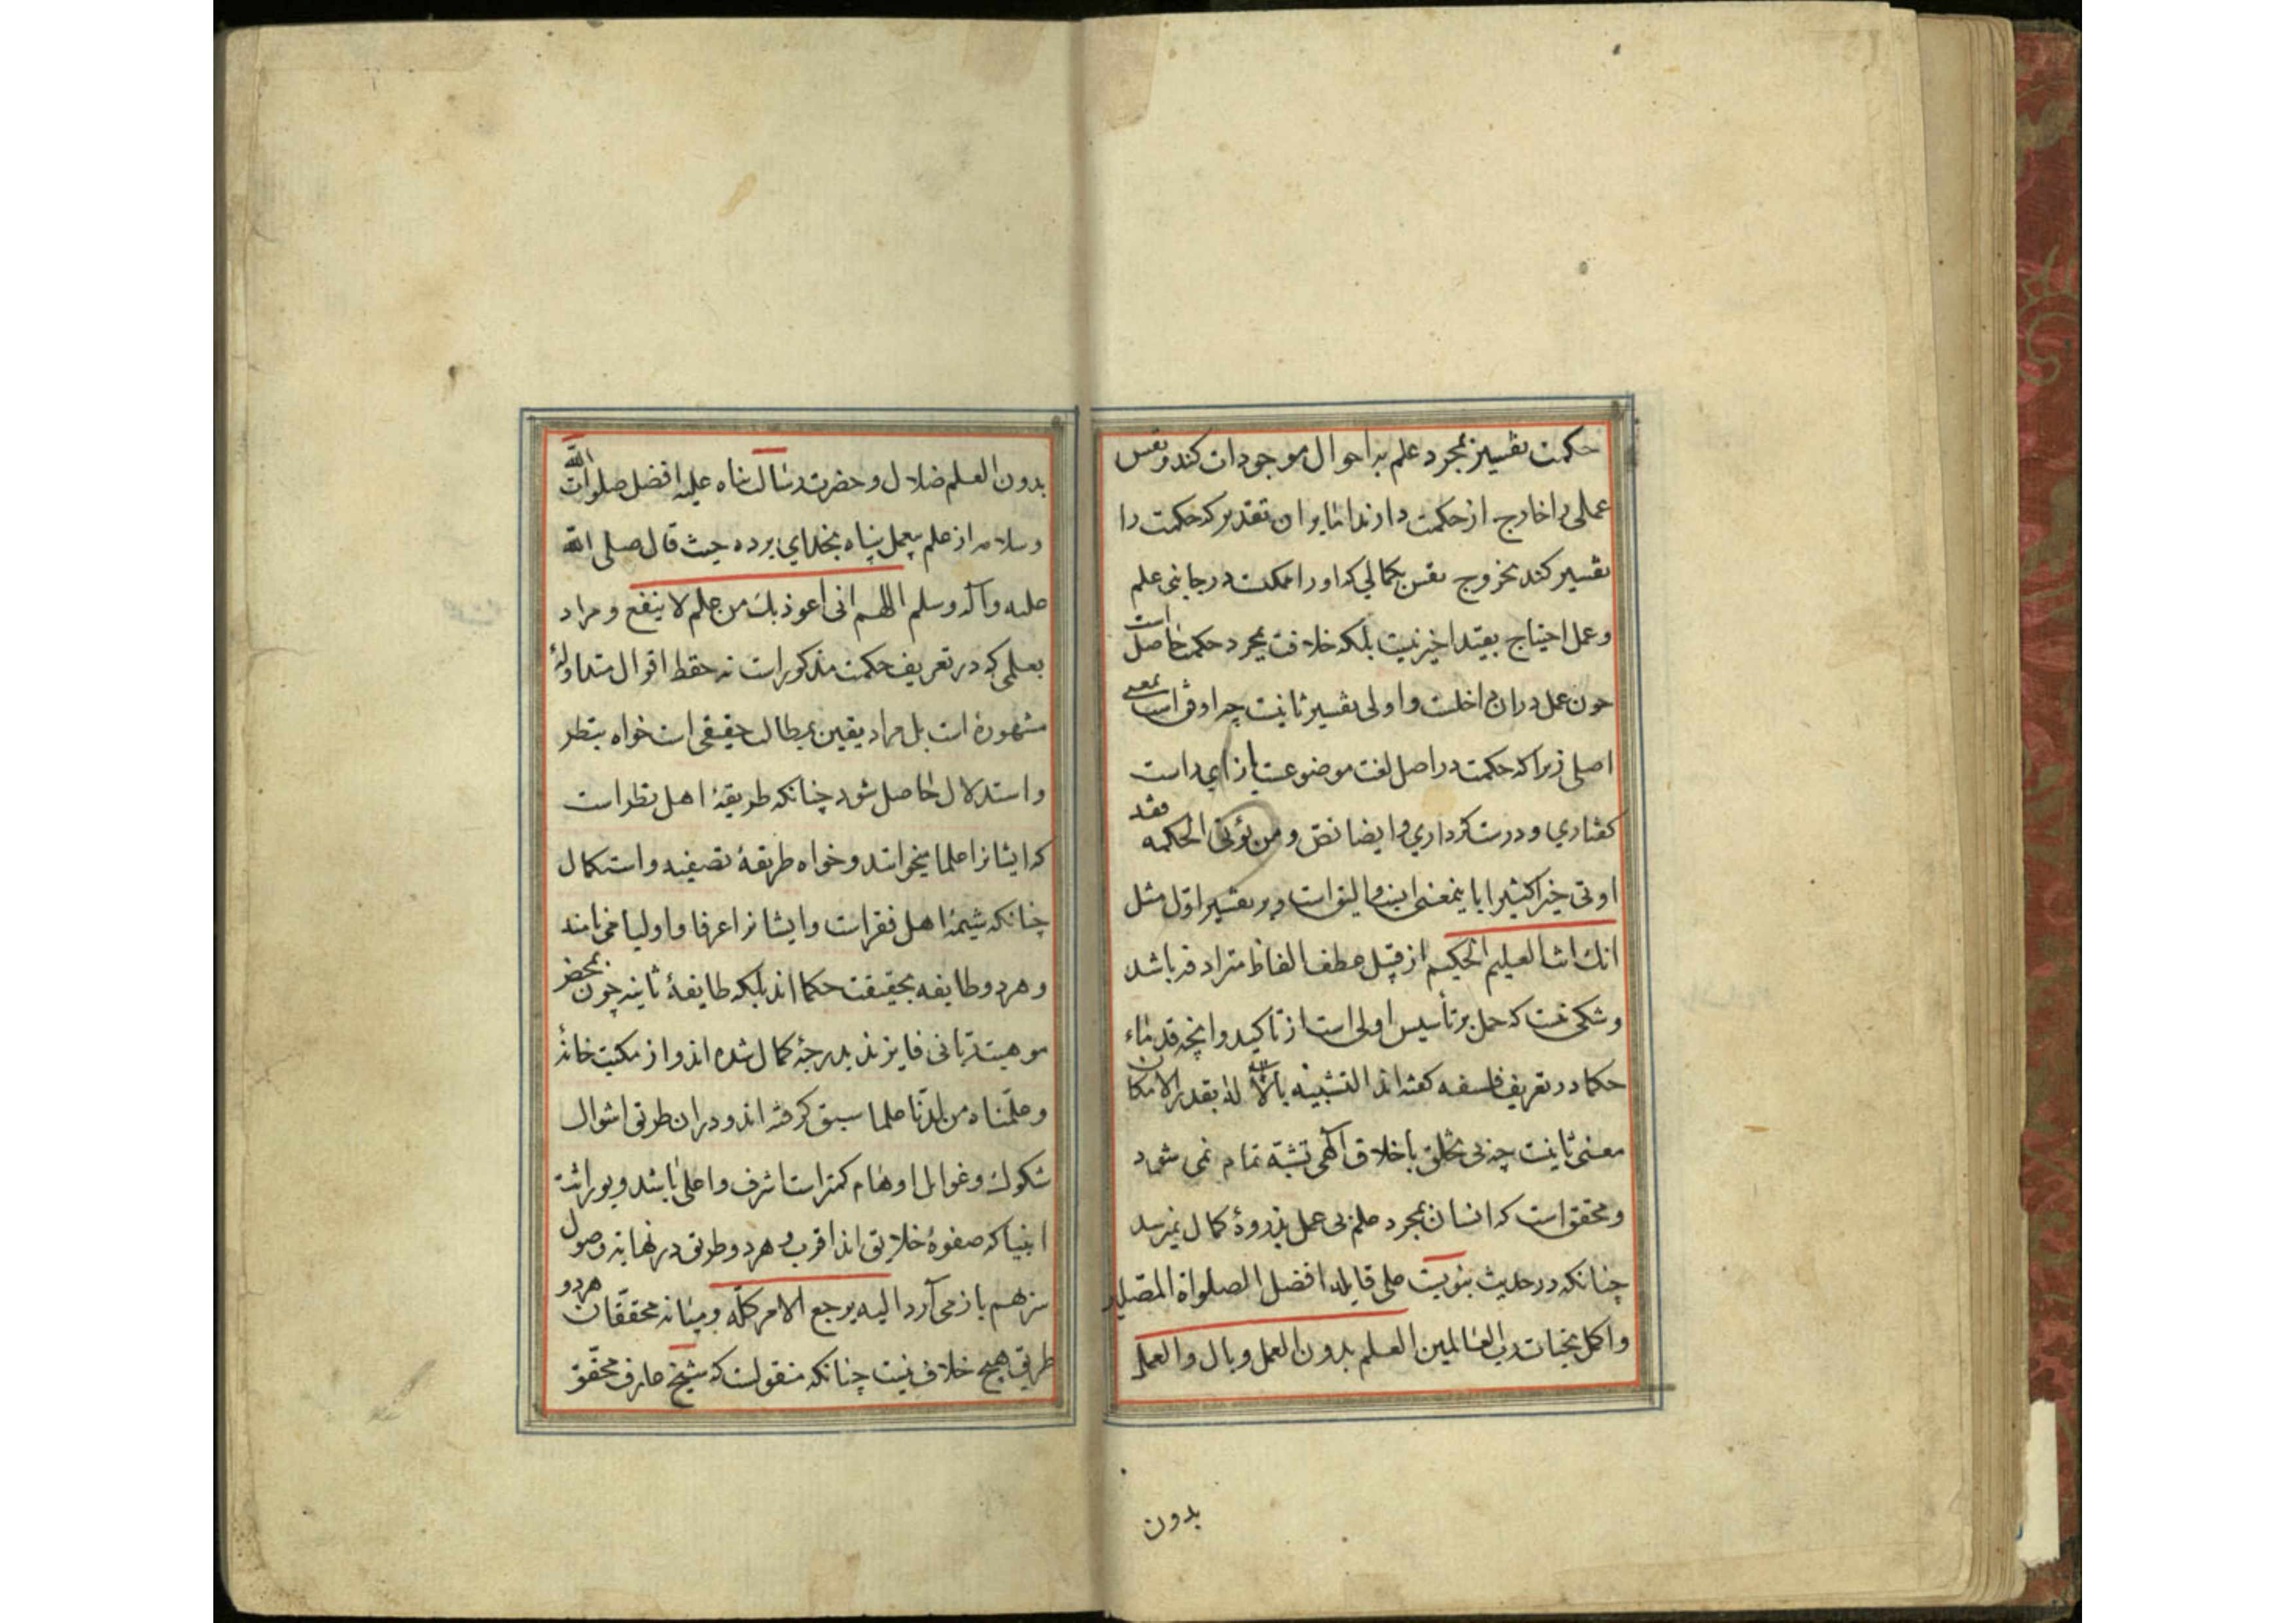 حکمت تفسیر بمجرد علم به احوال موجودات کند و نفس
عملی را خارج از حکمت دارند اما بران تقدیر که حکمت را
تفسیر کند بخروج نفس بکمالی که او را ممکنست در جانبی علم
و عمل احتیاج بقید اخیر نیست بلکه خلافت بمجرد حکمت حاصل است
چون عمل دران داخلست و اولی تفسیر ثانیست چه اوفق است بمعنی
اصلی زیرا که حکمت در اصل لغت موضوعست بازای راست
کفتاری و درست کرداری و ایضا نص و من یؤتی الحکمه فقد
اوتی خیرا کثیرا باینمعنی انسب و الیق است و بر تفسیر اول مثل
انك انت العلیم الحکیم از قبیل عطف الفاظ مترادفه باشد
و شکی نیست که حمل بر تأسیس اولی است از تأکید و انچه قدماء
حکما در تعریف فلسفه کفته اند التشبیه بالاله بقدر الامکان
معنی ثانیست چه بی تخلق باخلاق آلهی تشبه تمام نمی شود
و محقق است که انسان بمجرد علم بی عمل بذروهٔ کمال نمیرسد
چنانکه در حدیث نبویست علی قایله افضل الصلواة المصلین
و اکمل تحیات رب العالمین العلم بدون العمل وبال و العمل
بدون
بدون العلم ضلال و حضرت رسالت پناه علیه افضل صلوات الله
و سلامه از علم بیعمل پناه بخدای برده حیث قال صلی الله
علیه و آله وسلم اللهم انی اعوذ بك من علم لا ینفع و مراد
بعلمی که در تعریف حکمت مذکور است نه حفظ اقوال متداولهٔ
مشهوره است بل مراد یقین بمطالب حقیقی است خواه بنظر
و استدلال حاصل شود چنانکه طریقهٔ اهل نظر است
که ایشانرا علما میخوانند و خواه طریقهٔ تصفیه و استکمال
چنانکه شیمهٔ اهل فقر است و ایشانرا عرفا و اولیا می نامند
و هر دو طایفه بحقیقت حکما اند بلکه طایفهٔ ثانیه چون بمحض
موهبت ربانی فایز بدرجهٔ کمال شده اند و از مکتب خانهٔ
و علّمناه من لدنّا علما سبق کرفته اند و دران طریق اشواك
شکوك و غوایل اوهام کمتر است اشرف و اعلی باشد و بوراثت
انبیا که صفوهٔ خلایق اند اقرب و هر دو طریق در نهایت وصول
سر بهم باز می آرد الیه یرجع الامر کلّه و میانه محققّان هر دو
طریق هیچ خلاف نیست چنانکه منقولست که شیخ عارف محقّق